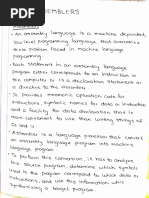 SEMBLERS
- An assembly language is a machine dependent,
low level programming language that overcomes
the problem faced in machine language
programing.
- Each statement in an assembly language
program either corresponds to an instruction in
the computer or is a declaration statement or
a directive to the assembler.
- It provides mnemonic operation code for
instructions, symbolic names for data or instruction
and a facility for data declaration that is
more convenient to use than writing strings of
0's and 1's.
- Assembler is a language processor that convert
an assembly language program into machine
language program.
- To perform this conversion, it has to analyze
the source program, determine which symbols
used in the program correspond to which data or
instructions, and use this information while
synthesizing a target program